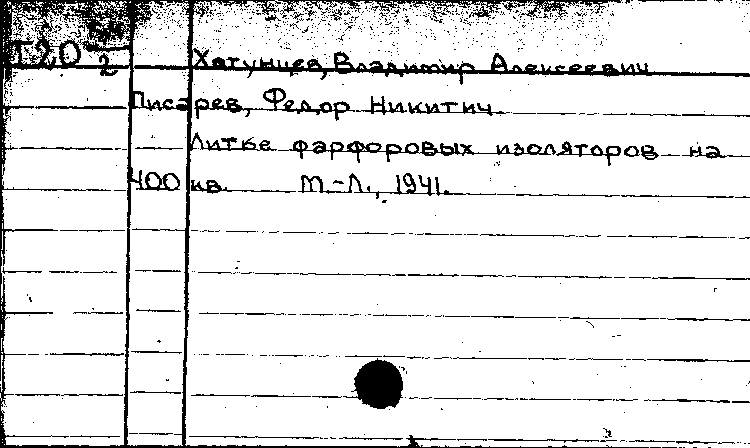 Т20 /2 Хатунцев, Владимир Алексеевич
Писарев, Федор Никитич.
Литье фарфоровых изоляторов на
400 кв. М.-Л., 1941.